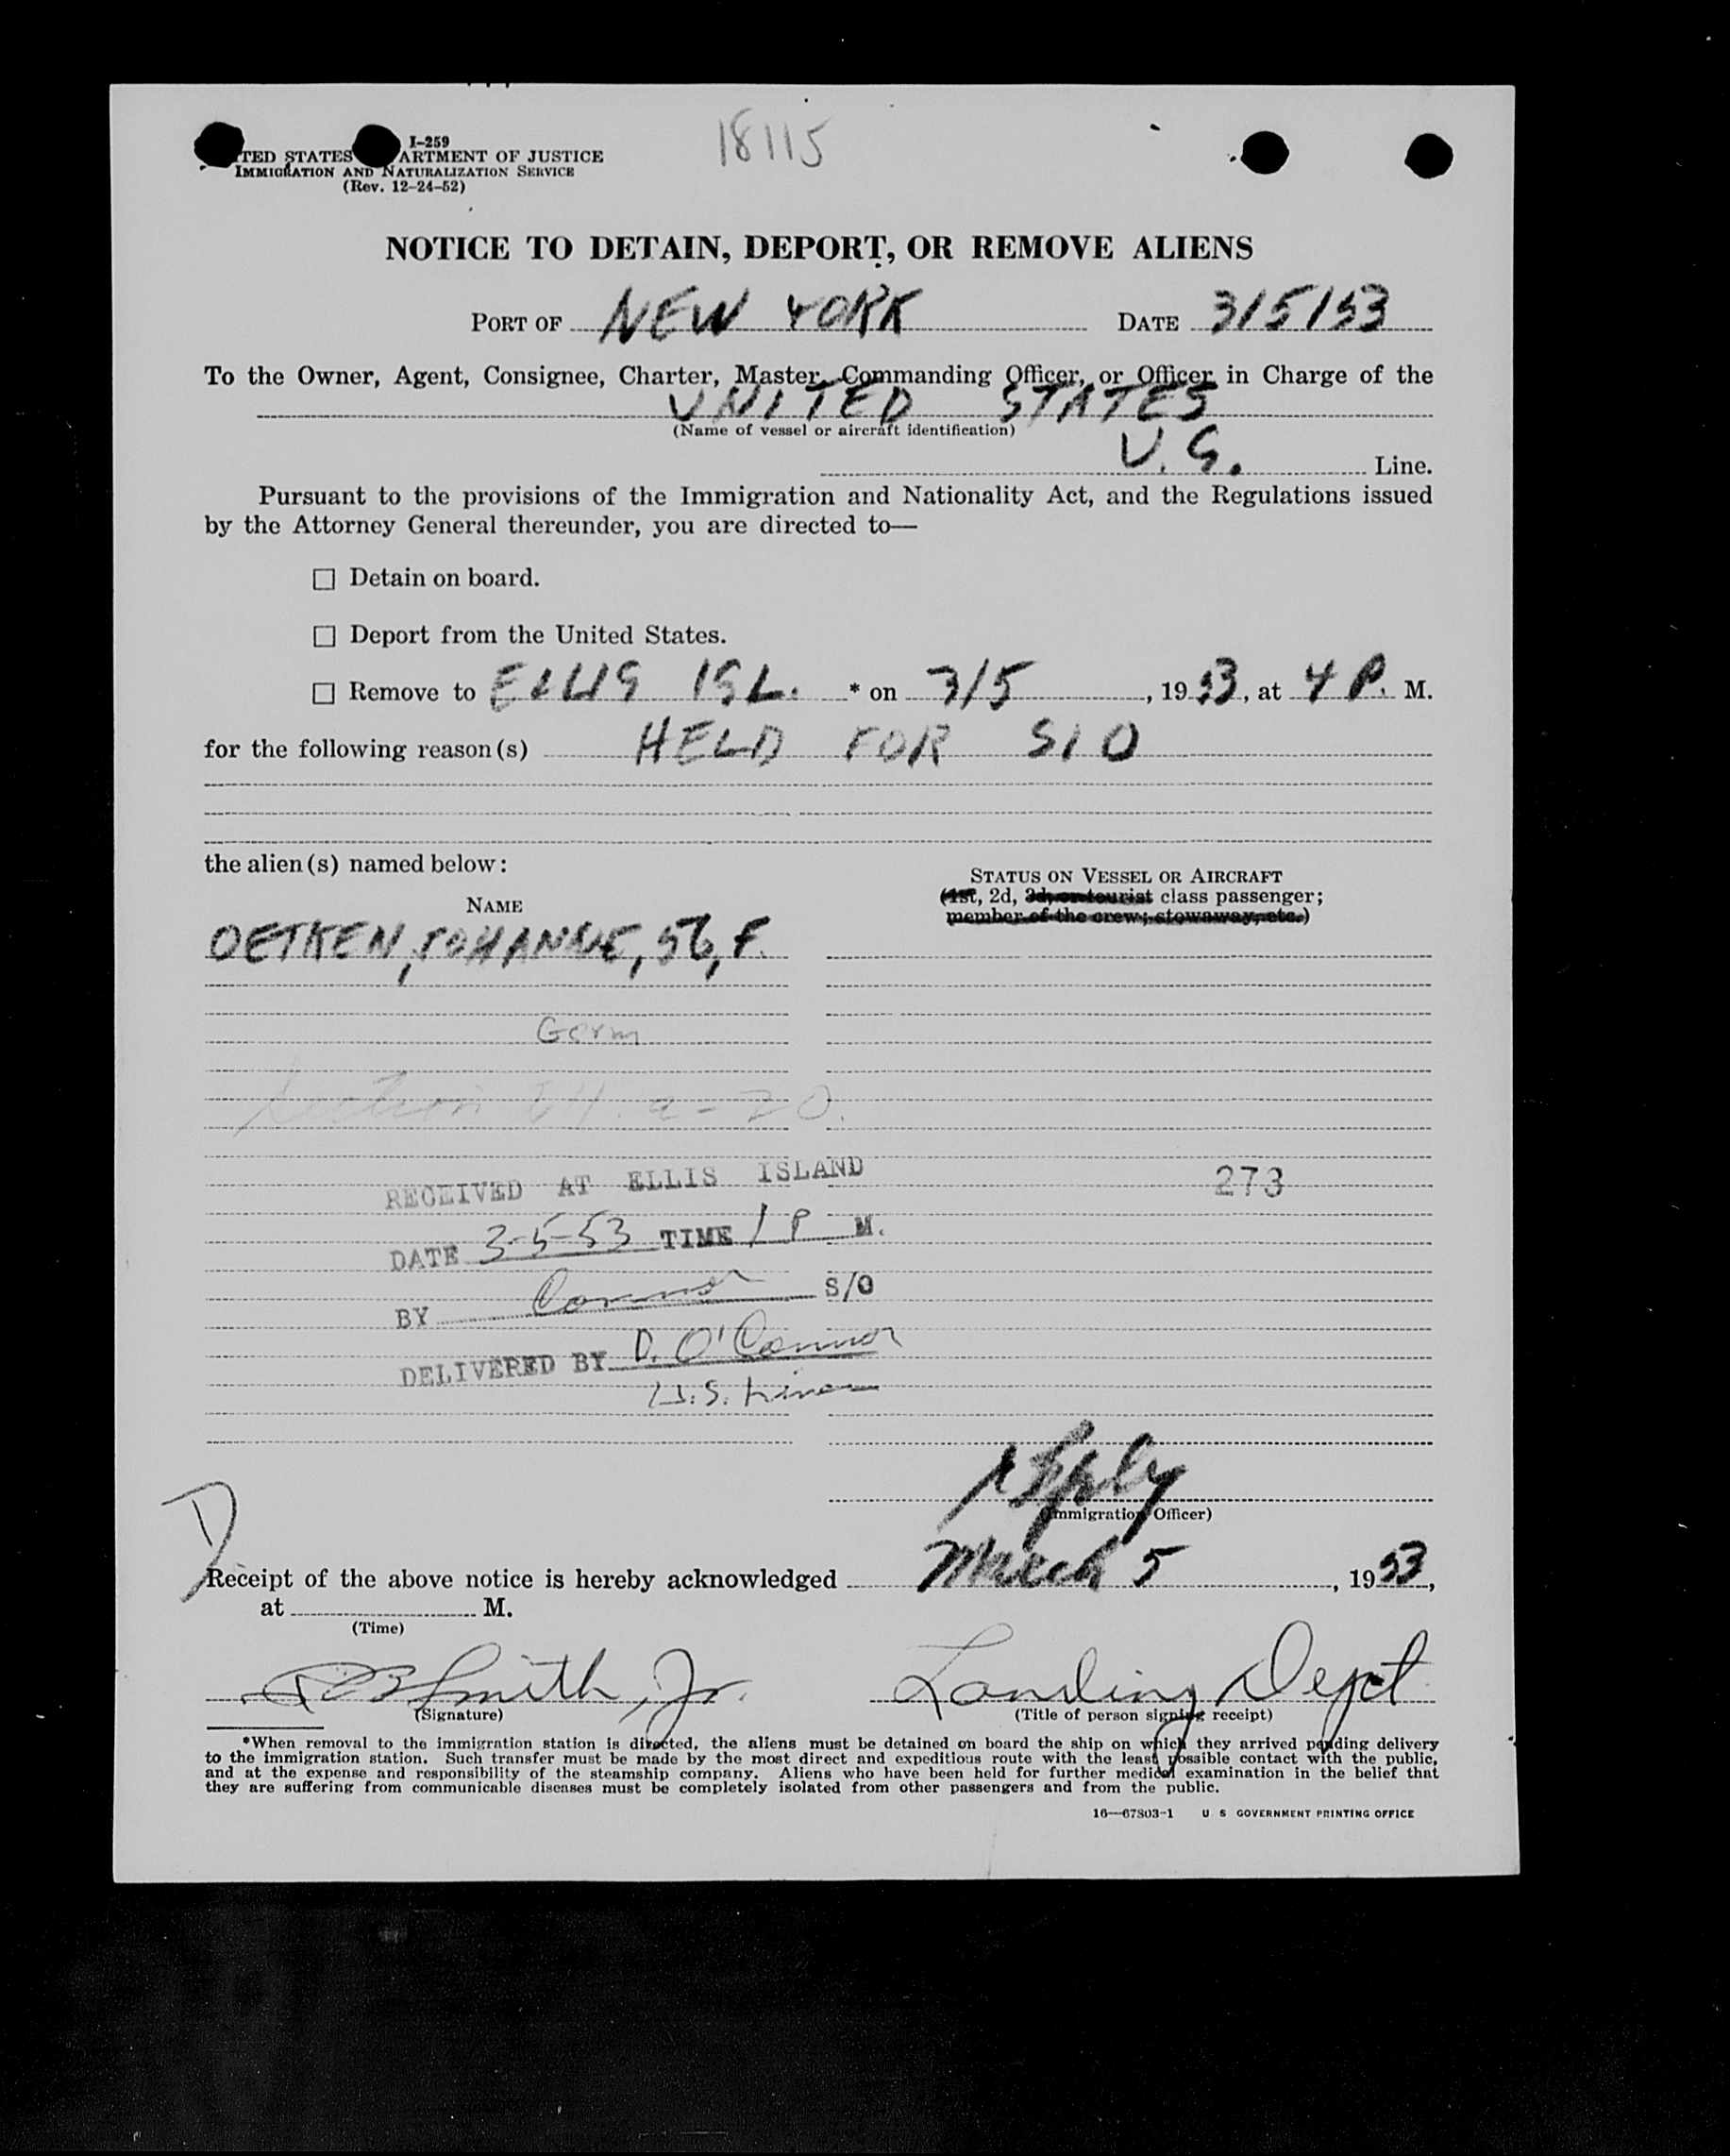 I-259
18115
TED STATES ARTMENT OF JUSTICE
IMMIGRATION AND NATURALIZATION SERVICE
(Rev. 12-24-52)
NOTICE TO DETAIN, DEPORT, OR REMOVE ALIENS
PORT OF NEW YORK DATE 3/5/53
To the Owner, Agent, Consignee, Charter, Master, Commanding Officer, or Officer in Charge of the
UNITED STATES
(Name of vessel or aircraft identification)
U.S. Line.
Pursuant to the provisions of the Immigration and Nationality Act, and the Regulations issued
by the Attorney General thereunder, you are directed to—
☐ Detain on board.
☐ Deport from the United States.
☐ Remove to ELLIS ISL. * on 3/5, 1953, at 4 P. M.
for the following reason(s) HELD FOR SIO
the alien(s) named below:
STATUS ON VESSEL OR AIRCRAFT
(1st, 2d, 3d, or tourist class passenger;
member of the crew; stowaway, etc.)
NAME
OETKEN, JOHANNE, 56, F.
Germ
Section a-20.
RECEIVED AT ELLIS ISLAND
273
DATE 3-5-53 TIME 1 P M.
BY Connor S/O
DELIVERED BY D. O'Connor
U.S. Lines
(Immigration Officer)
D
Receipt of the above notice is hereby acknowledged March 5, 1953,
at M.
(Time)
Smith, Jr. Landing Dept
(Signature) (Title of person signing receipt)
*When removal to the immigration station is directed, the aliens must be detained on board the ship on which they arrived pending delivery
to the immigration station. Such transfer must be made by the most direct and expeditious route with the least possible contact with the public,
and at the expense and responsibility of the steamship company. Aliens who have been held for further medical examination in the belief that
they are suffering from communicable diseases must be completely isolated from other passengers and from the public.
16—67803-1 U S GOVERNMENT PRINTING OFFICE